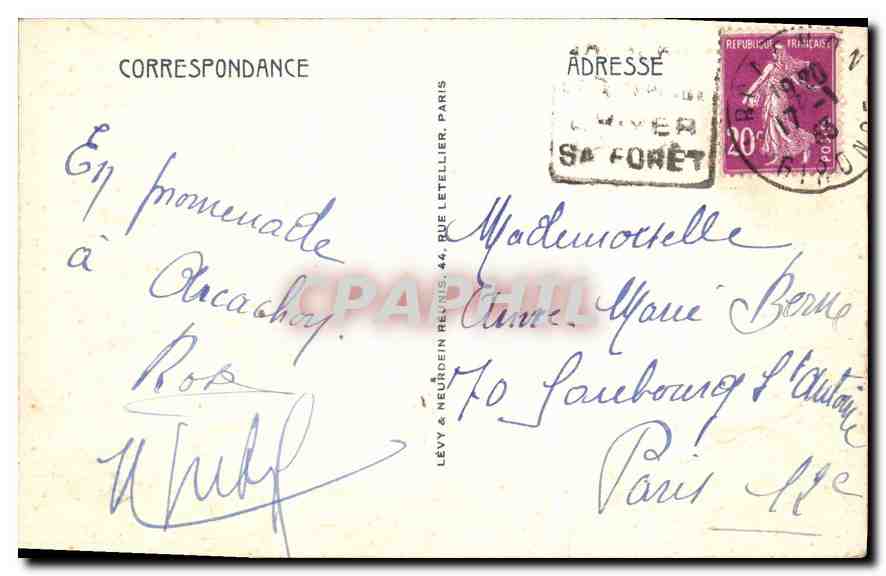 CORRESPONDANCE
En promenade
à Arcachon.
Rose
LÉVY & NEURDEIN RÉUNIS, 44, RUE LETELLIER, PARIS
ADRESSE
HIVER
SA FORÊT
REPUBLIQUE FRANÇAISE
20c
POSTES
19 20
17 - 1
Mademoiselle
Anne-Marie Berne
70 Faubourg St Antoine
Paris 12e
CPAPHIL